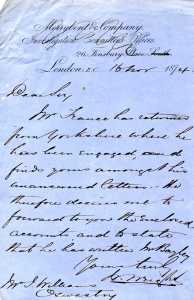 Marylebone & Company,
26, Finsbury Place South
London, E.C. 16 Nov 1874
Dear Sir
Mr France has returned
from Yorkshire where he
has been engaged, and
finds yours amongst his
unanswered letters. He
therefore desires me to
forward to you the enclosed
account and to state
that he has written Mr
Yours truly
Mr J Williams